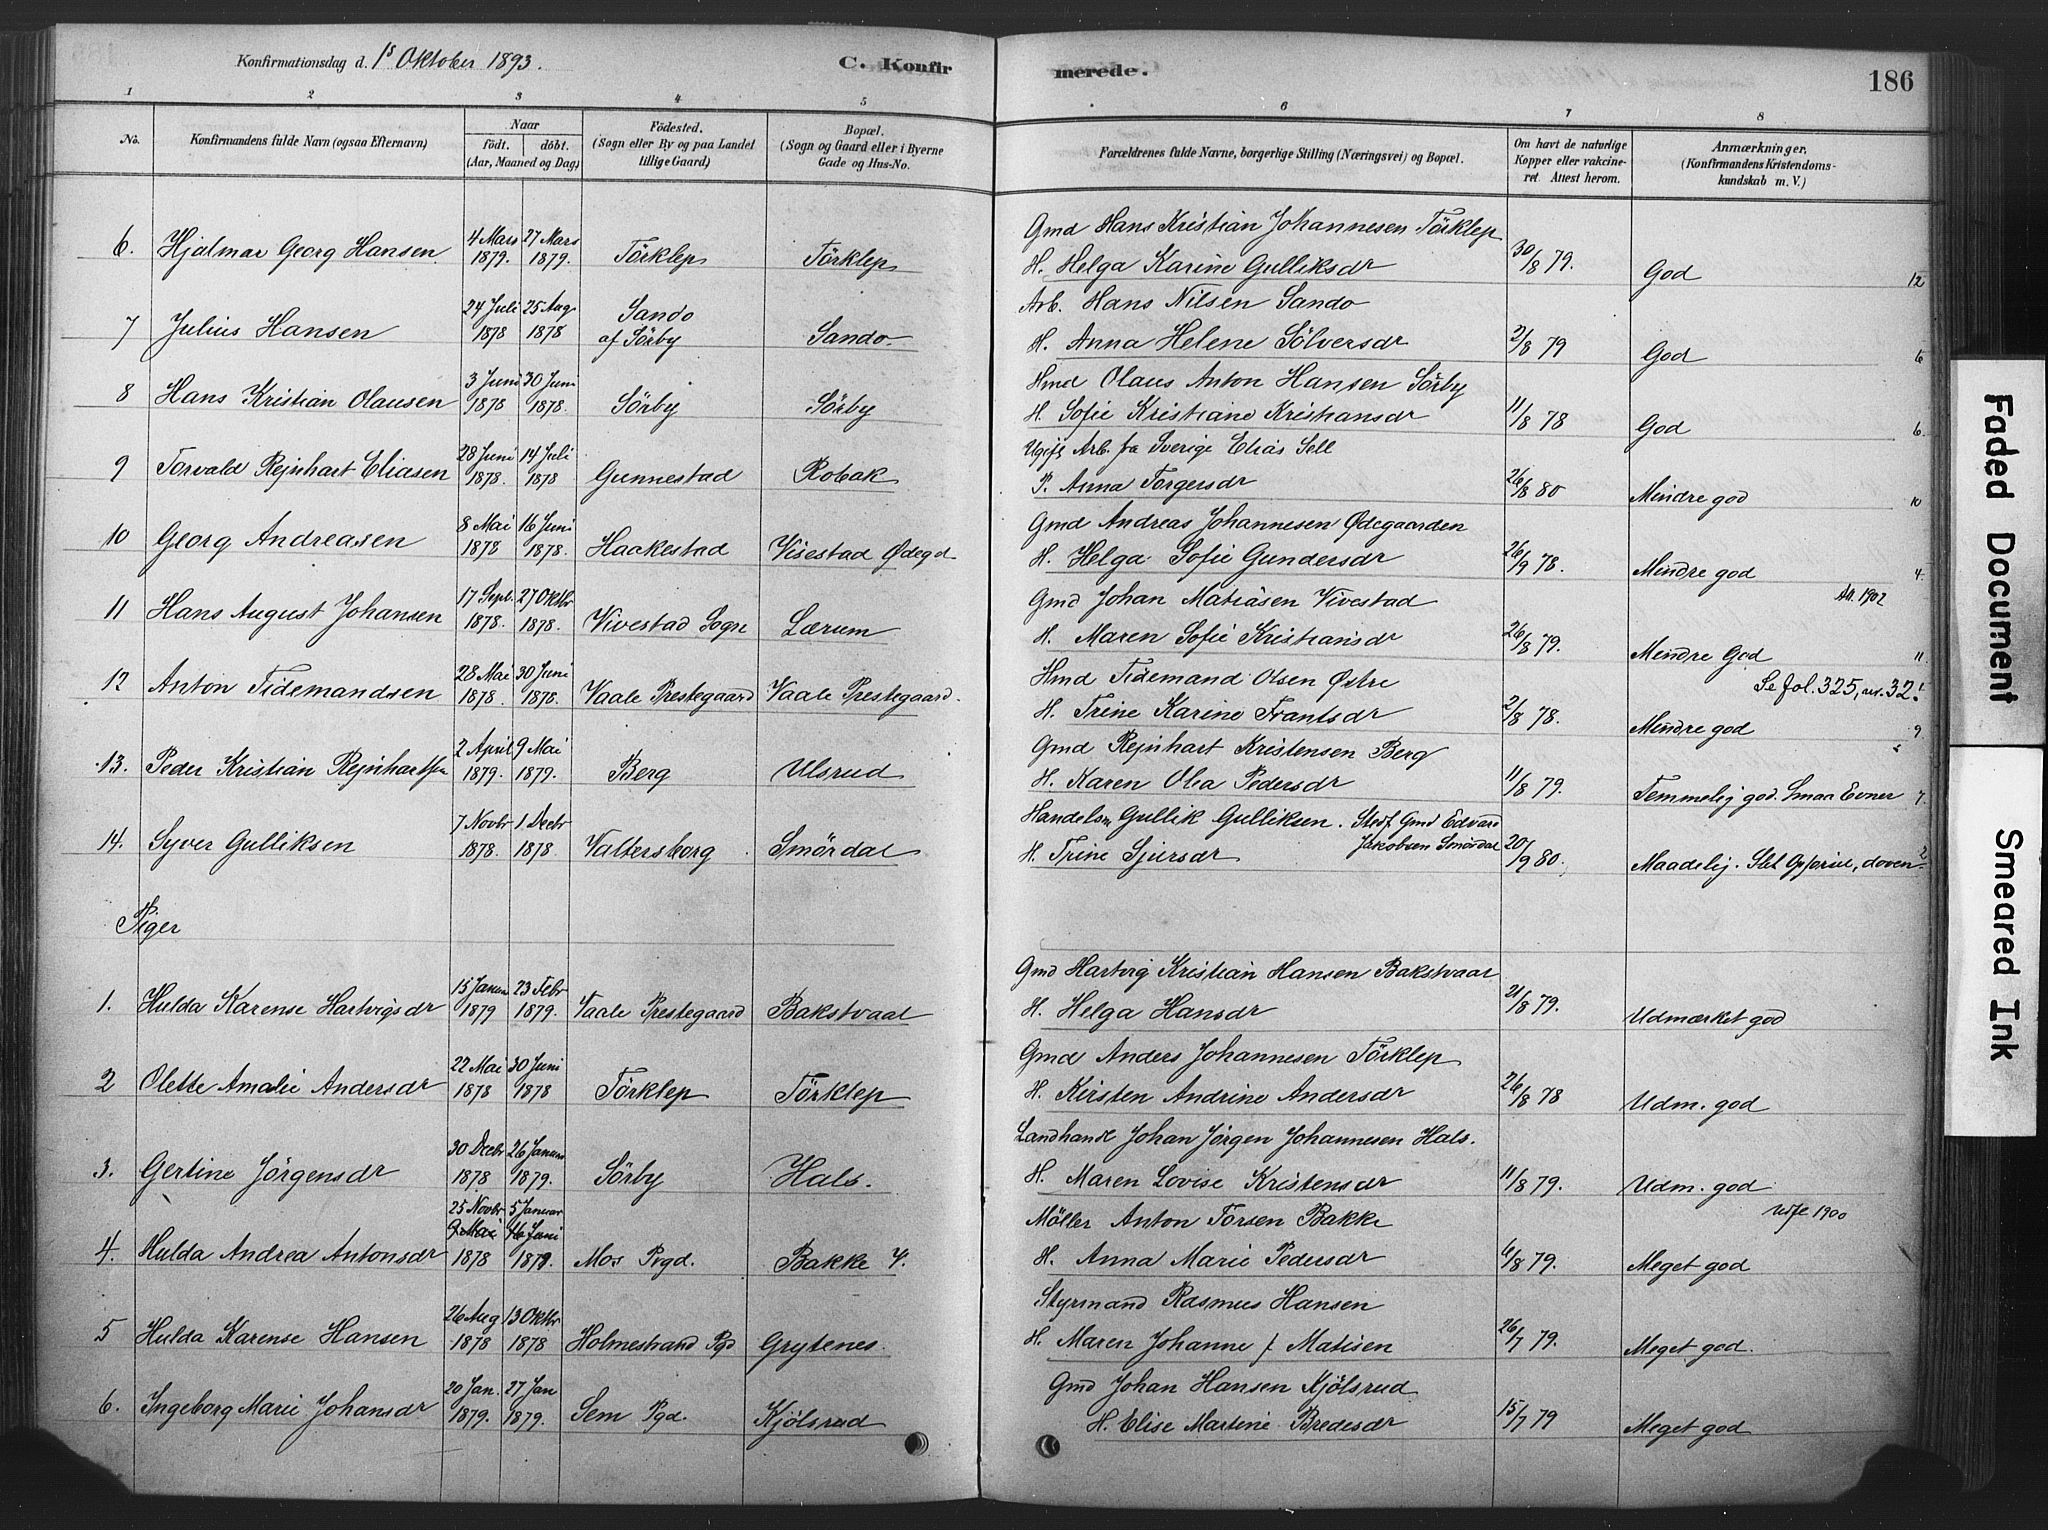 Konfirmationsdag d. 1s Oktober 1893.
C. Konfirmerede.
186
1 2 3 4 5 6 7 8
No.
Konfirmandens fulde Navn (ogsaa Efternavn)
Naar
födt. döbt.
(Aar, Maaned og Dag)
Födested.
(Sogn eller By og paa Landet tillige Gaard)
Bopæl.
(Sogn og Gaard eller i Byerne Gade og Hus-No.
Forældrenes fulde Navne, borgerlige Stilling (Næringsvei) og Bopæl.
Om havt de naturlige Kopper eller vakcineret. Attest herom.
Anmærkninger.
(Konfirmandens Kristendomskundskab m. V.)
6. Hjalmar Georg Hansen 4 Mars 1879. 27 Mars 1879. Törklep Törklep
Gmd Hans Kristian Johannesen Törklep
H. Helga Karine Gulliksdr 30/8 79. God 12
7 Julius Hansen 24 Juli 1878 25 Aug 1878 Sando af Sörby Sando
Arb. Hans Nilsen Sando
H. Anna Helene Sölversdr 2/8 79 God 6
8 Hans Kristian Olausen 3 Juni 1878 30 Juni 1878. Sörby Sörby
Hmd Olaus Anton Hansen Sörby
H. Sofie Kristiane Kristiansdr 11/8 78 God 6.
9 Torvald Rejnhart Eliasen 28 Juni 1878. 14 Juli 1878 Gunnestad Robak
Ugift Arb. fra Sverige Elias Sell
P. Anna Torgersdr 26/8 80 Mindre god 10
10 Georg Andreasen 8 Mai 1878 16 Juni 1878. Haakestad Visestad Ødegd
Gmd Andreas Johannesen Ødegaarden
H. Helga Sofie Gundersdr 26/9 78. Mindre god 4.
11 Hans August Johansen 17 Sept. 1878. 27 Oktbr 1878. Vivestad Sogn Lærum
Gmd Johan Matiasen Vivestad Att. 1902
H. Maren Sofie Kristiansdr 26/8 79. Mindre God 11.
12 Anton Tidemandsen 28 Mai 1878 30 Juni 1878. Vaale Prestegaard Vaale Prestegaard.
Hmd Tidemand Olsen Østre Se fol. 325, nr. 32!
H. Trine Karine Frantsdr 2/8 78. Mindre god 9
13. Peder Kristian Rejnhartsen 2 April 1879. 9 Mai 1879. Berg Ulsrud
Gmd Rejnhart Kristensen Berg
H. Karen Olea Pedersdr 11/8 79. Temmelig god. Smaa Evner 7.
14. Syver Gulliksen 7 Novbr 1878. 1 Decbr 1878 Valtersborg Smördal
Handelsm Gullik Gulliksen. Stedf. Gmd Edvard Jakobsen Smördal
H. Trine Sjursdr 20/9 80. Maadelig. Slet Opførsel, doven 2
Piger
1. Hulda Karense Hartvigsdr 15 Januar 1879 23 Febr 1879. Vaale Prestegaard Bakstvaal
Gmd Hartvig Kristian Hansen Bakstvaal
H. Helga Hansdr 21/8 79. Udmærket god
2 Olette Amalie Andersdr 22 Mai 1878 30 Juni 1878 Törklep Törklep
Gmd Anders Johannesen Törklep
H. Kirsten Andrine Andersdr 26/8 78 Udm. god
3. Gertine Jörgensdr 30 Decbr 1878 26 Januar 1879. Sörby Hals.
Landhandl Johan Jörgen Johannesen Hals.
H. Maren Lovise Kristensdr 11/8 79. Udm. god
4. Hulda Andrea Antonsdr 25 Novbr 9 Mai 1878 5 Januar 16 Juni 1879. Mos Prgd. Bakke 4.
Möller Anton Torsen Bakke utfl 1900
H. Anna Marie Pedersdr 6/8 79. Meget god
5 Hulda Karense Hansen 26 Aug 1878 13 Oktbr 1878 Holmestrand Pgd Grytenes.
Styrmand Rasmus Hansen
H. Maren Johanne f. Matisen 26/7 79. Meget god.
6. Ingeborg Marie Johansdr 20 Jan. 1879. 27 Jan 1879. Sem Pgd. Kjölsrud
Gmd Johan Hansen Kjölsrud
H. Elise Martine Bredesdr 15/7 79 Meget god
Faded Document
Smeared Ink